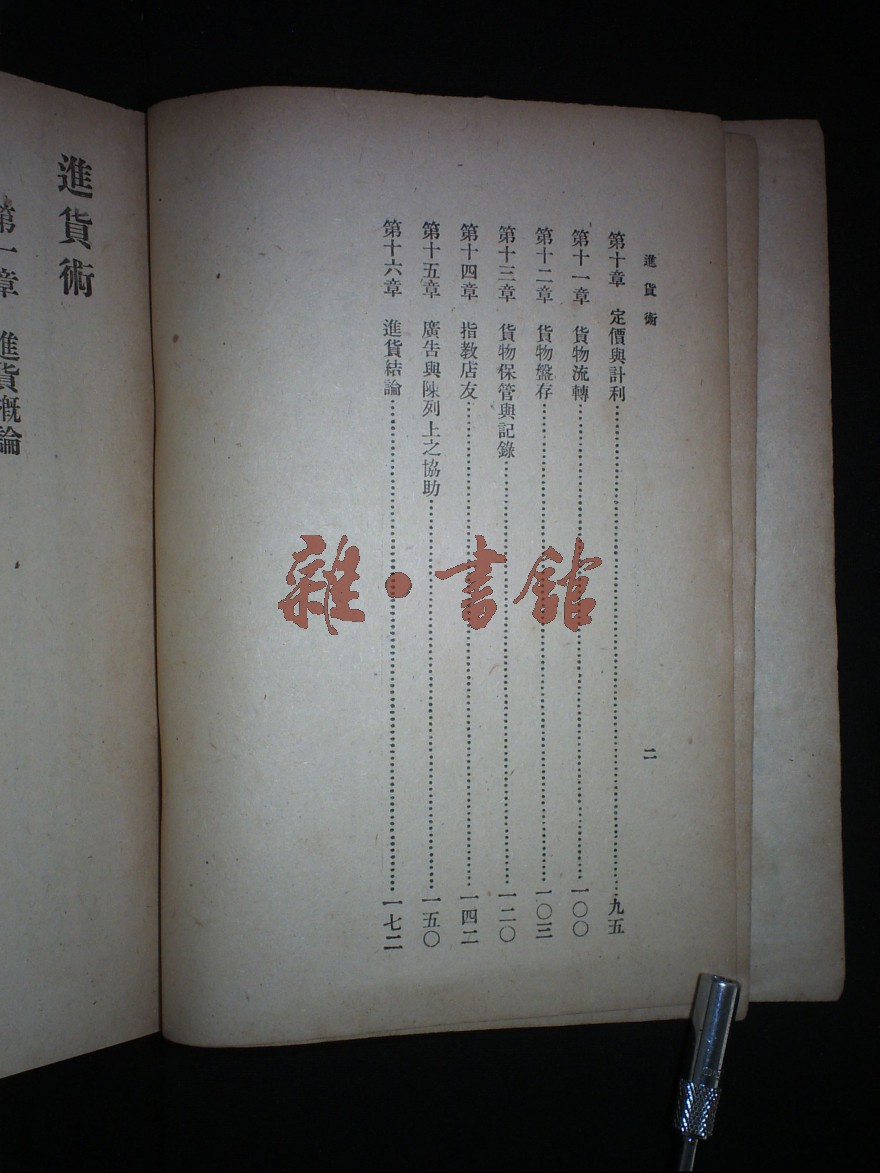 進貨術
二
第十章 定價與計利……九五
第十一章 貨物流轉……一〇〇
第十二章 貨物盤存……一〇三
第十三章 貨物保管與記錄……一二〇
第十四章 指教店友……一四二
第十五章 廣告與陳列上之協助……一五〇
第十六章 進貨結論……一七二
進貨術
第一章 進貨概論
雜·書館